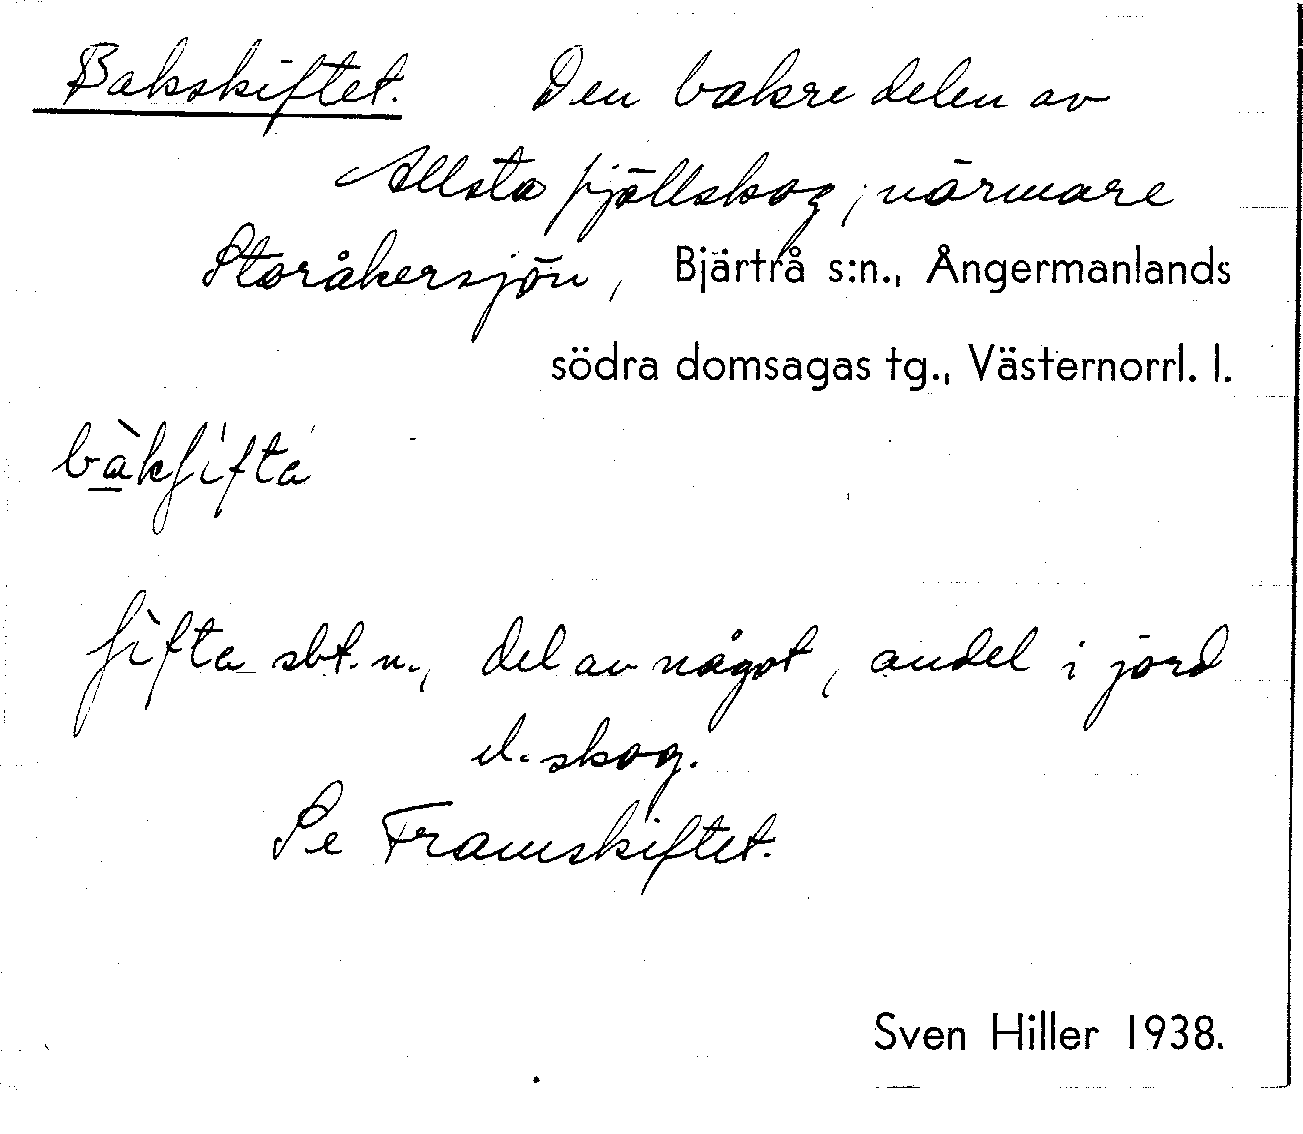 Bakskiftet. Den bakre delen av
Allsta fjällskog, närmare
Storåkersjön, Bjärtrå s:n., Ångermanlands
södra domsagas tg., Västernorrl. l.
bàkʃìfta
ʃìfta sbt. n., del av något, andel i jord
el. skog.
Se Framskiftet.
Sven Hiller 1938.